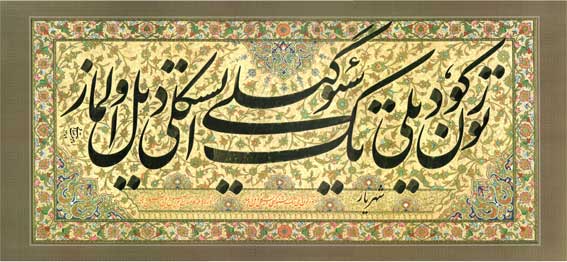 تورکون دیلی تک سئوگیلی ایستکلی دیل اولماز
شهریار